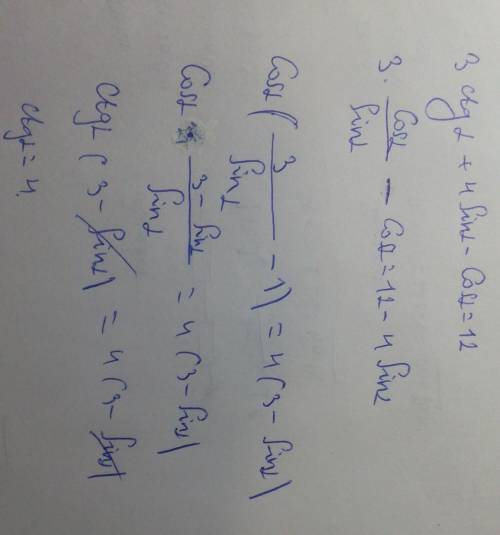 3 ctgα + 4 Sinα - Cosα = 12
3 · Cosα/Sinα - Cosα = 12 - 4 Sinα
Cosα ( 3/Sinα - 1) = 4 (3 - Sinα)
Cosα · (3 - Sinα)/Sinα = 4 (3 - Sinα)
Ctgα (3 - Sinα) = 4 (3 - Sinα)
Ctgα = 4.